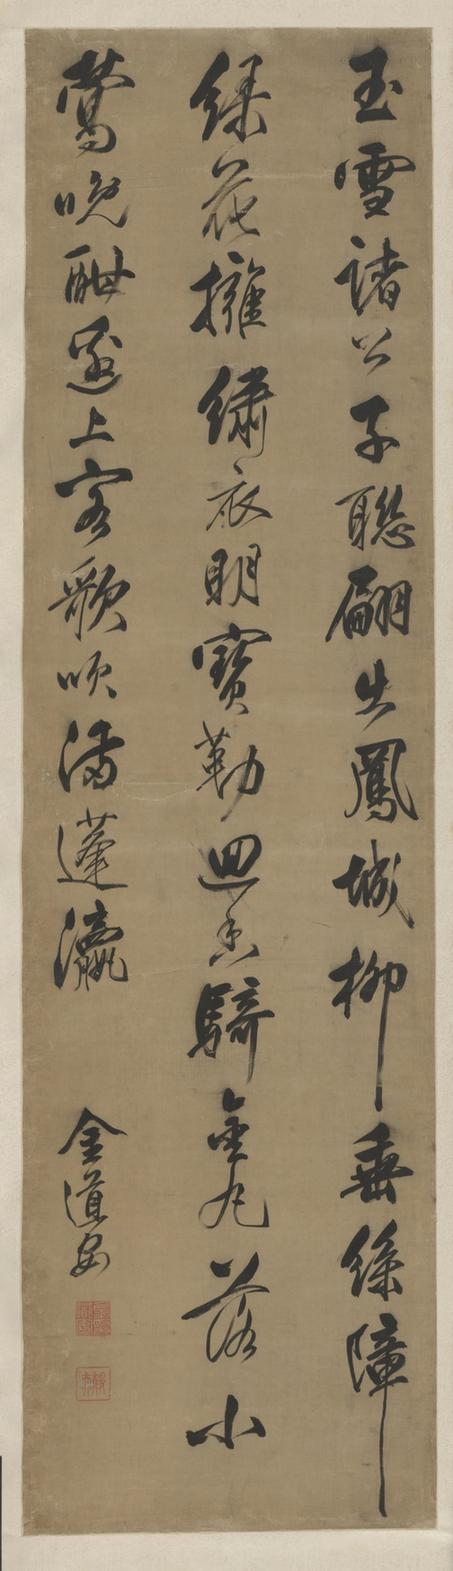 玉雪諸公子聰翩出鳳城柳垂絲障
綠花擁繡衣明寶勒迴香騎金丸落小
鶯晚酣邀上客歌吹滿蓬瀛
金道安